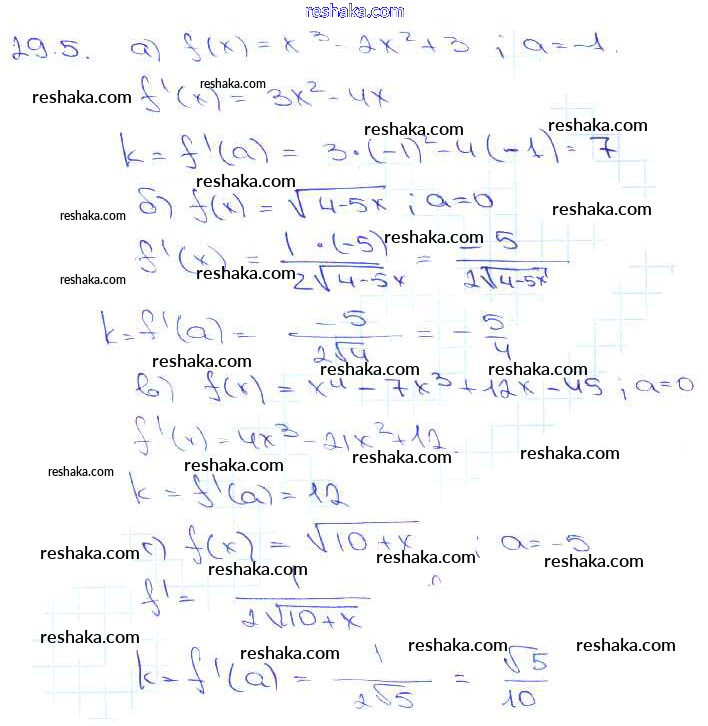 reshaka.com
29.5. а) f(x) = x³ - 2x² + 3 ; a = -1.
reshaka.com reshaka.com reshaka.com
f'(x) = 3x² - 4x
reshaka.com
k = f'(a) = 3·(-1)² - 4(-1) = 7
reshaka.com reshaka.com
б) f(x) = √(4-5x) ; a = 0
reshaka.com reshaka.com reshaka.com
f'(x) = 1·(-5)/(2√(4-5x)) = -5/(2√(4-5x))
reshaka.com reshaka.com reshaka.com
k = f'(a) = -5/(2√4) = -5/4
reshaka.com reshaka.com reshaka.com
в) f(x) = x⁴ - 7x³ + 12x - 45 ; a = 0
reshaka.com reshaka.com
f'(x) = 4x³ - 21x² + 12
reshaka.com reshaka.com reshaka.com
k = f'(a) = 12
г) f(x) = √(10+x) ; a = -5
reshaka.com reshaka.com reshaka.com
f' = 1/(2√(10+x))
reshaka.com reshaka.com reshaka.com
k = f'(a) = 1/(2√5) = √5/10